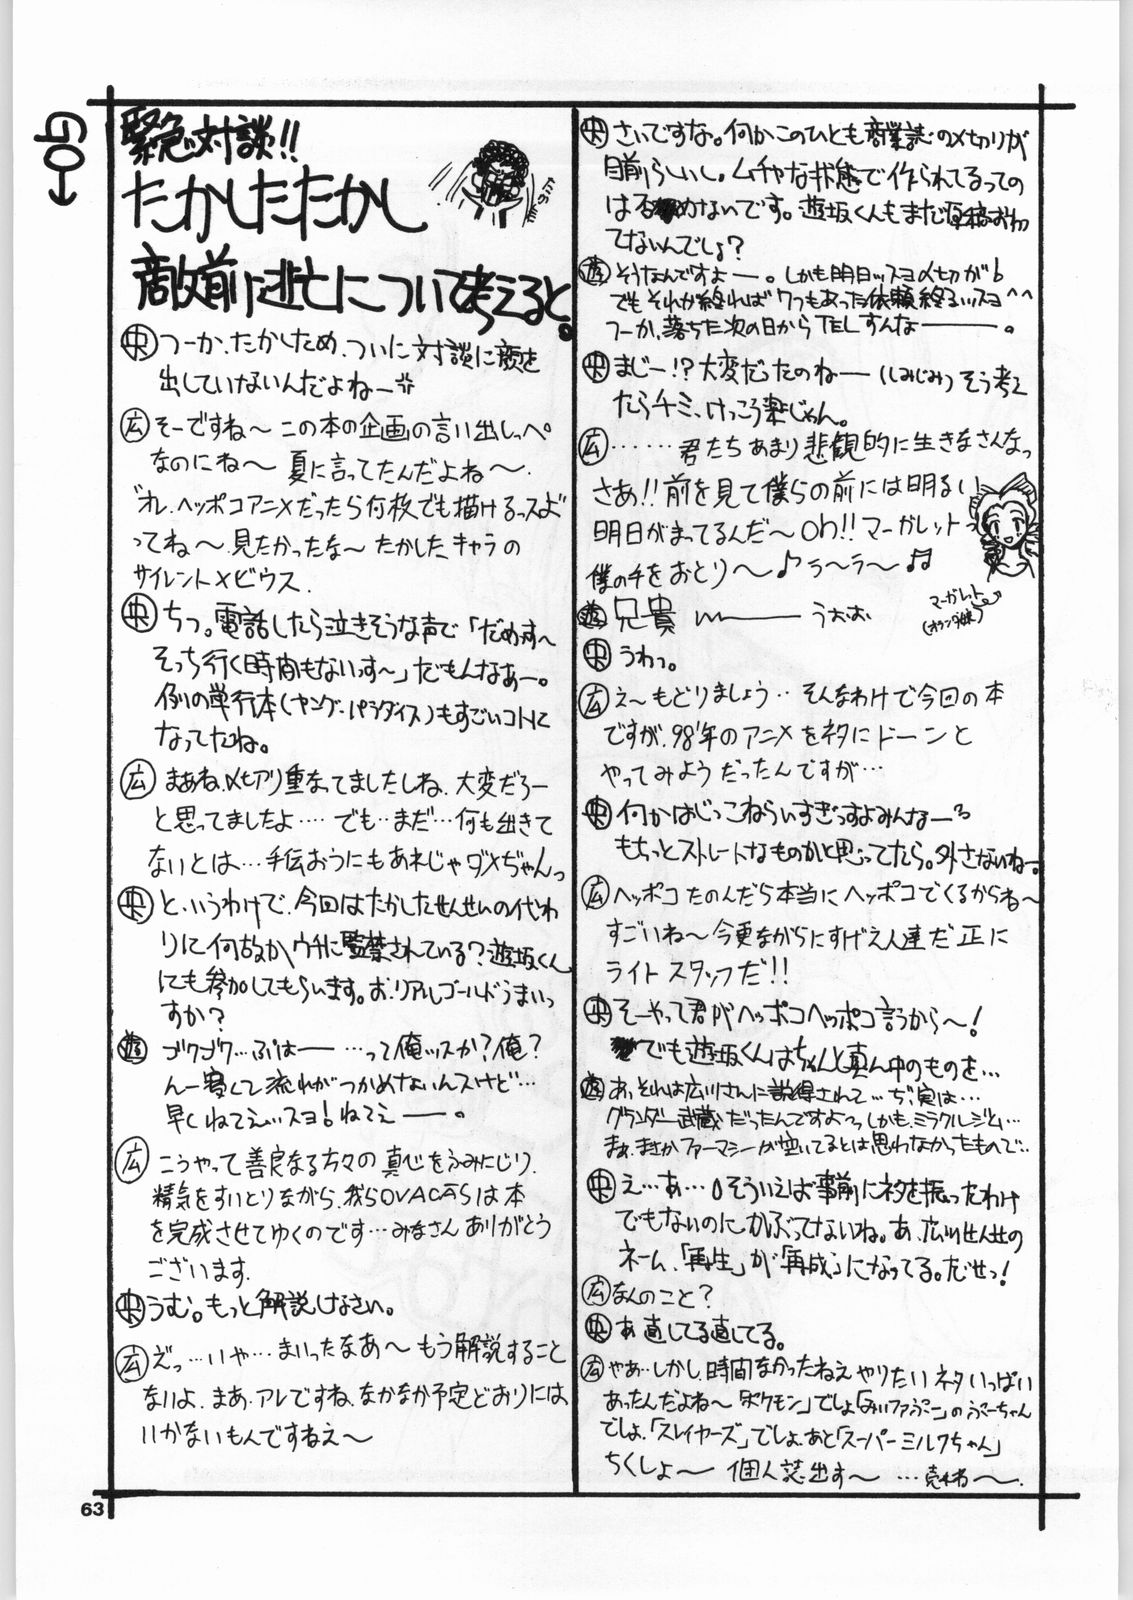 GO→
緊急対談!!
たかしたたかし
敵前に逃亡について考えると。
央 つーか、たかしため、ついに対談に顔を
出していないんだよねー
広 そーですね〜この本の企画の言い出しっぺ
なのにね〜 夏に言ってたんだよね〜.
"オレ、ヘッポコアニメだったら何枚でも描けるっスよ"
ってね〜 見たかったな〜 たかした、キャラの
サイレントメビウス.
央 ちっ。電話したら泣きそうな声で「だめっす〜
そっち行く時間もないっす〜」だもんなぁー。
例の単行本(ヤング・パラダイス)もすごいコトに
なってたね。
広 まぁね、〆切り重なってましたしね、大変だろー
と思ってましたよ‥‥でも‥まだ…何も出きて
ないとは…手伝おうにもあれじゃダメぢゃんっ
央 と、いうわけで、今回はたかしたせんせいの代わ
りに何故かウチに監禁されている?遊坂くん
にも参加してもらいます。お、リアルゴールドうまいっ
すか?
遊 ゴクゴク…ぷはー ……って俺ッスか?俺?
んー寒くて流れがつかめないんスけど…
早くねてえ…スヨ!ねてえー。
広 こうやって善良なる方々の真心をふみにじり、
精気をすいとりながら、我らOVACASは本
を完成させてゆくのです…みなさんありがとう
ございます.
央 うむ。もっと解説しなさい。
広 えっ…いや…まいったなあ〜 もう解説すること
ないよ、まあ、アレですね、なかなか予定どおりには
いかないもんですねえ〜
央 さいですな。何かこのひとも商業誌の〆切りが
目前らしいし。ムチャな状態で作られてるっての
は否めないです。遊坂くんもまだ原稿おわっ
てないんでしょ?
遊 そうなんですよー。しかも明日ッスヨ〆切が
でもそれが終れば7つもあった依頼終るッスヨ^^
つーか、落ちた次の日からTELすんなー。
央 まじー!?大変だったのねー(しみじみ)そう考え
たらチミ、けっこう楽じゃん。
広 ‥‥‥君たちあまり悲観的に生きなさんな
さあ!!前を見て僕らの前には明るい
明日がまってるんだ〜Oh!!マーガレットっ
僕の手をおとり〜♪ラ〜ラ〜♬
マーガレット
(オランダ娘)
遊 兄貴ィー うぉぉ
央 うわっ。
広 え〜もどりましょう‥そんなわけで今回の本
ですが、98'年のアニメをネタにドーンと
やってみようだったんですが…
央 何かはじっこねらいすぎっすよみんなー
もちっとストレートなものかと思ってたら。外さないねー。
広 ヘッポコたのんだら本当にヘッポコでくるからね〜
すごいね〜今更ながらにすげえ人達だ正に
ライトスタッフだ!!
央 そーやって君がヘッポコヘッポコ言うから〜!
でも遊坂くんはちゃんと真ん中のものを…
遊 あっそれは広川さんに説得されて…ぢ、実は…
グランダー武蔵だったんですよっっしかも、ミラクルジム…
まぁ、まさかファーマシーが空いてるとは思わなかったもので…
央 え…あ…そういえば事前にネタを振ったわけ
でもないのにかぶってないね。あ、広川せんせの
ネーム、「再生」が「再成」になってる。だせっ!
広 なんのこと?
央 あ直してる直してる。
広 やあ‥しかし、時間なかったねえやりたいネタいっぱい
あったんだよね〜「ポケモン」でしょ「みぃファぷー」のぷーちゃん
でしょ、「スレイヤーズ」でしょ、あと「スーパーミルクちゃん」
ちくしょ〜 個人誌出す〜 …売れね〜.
63